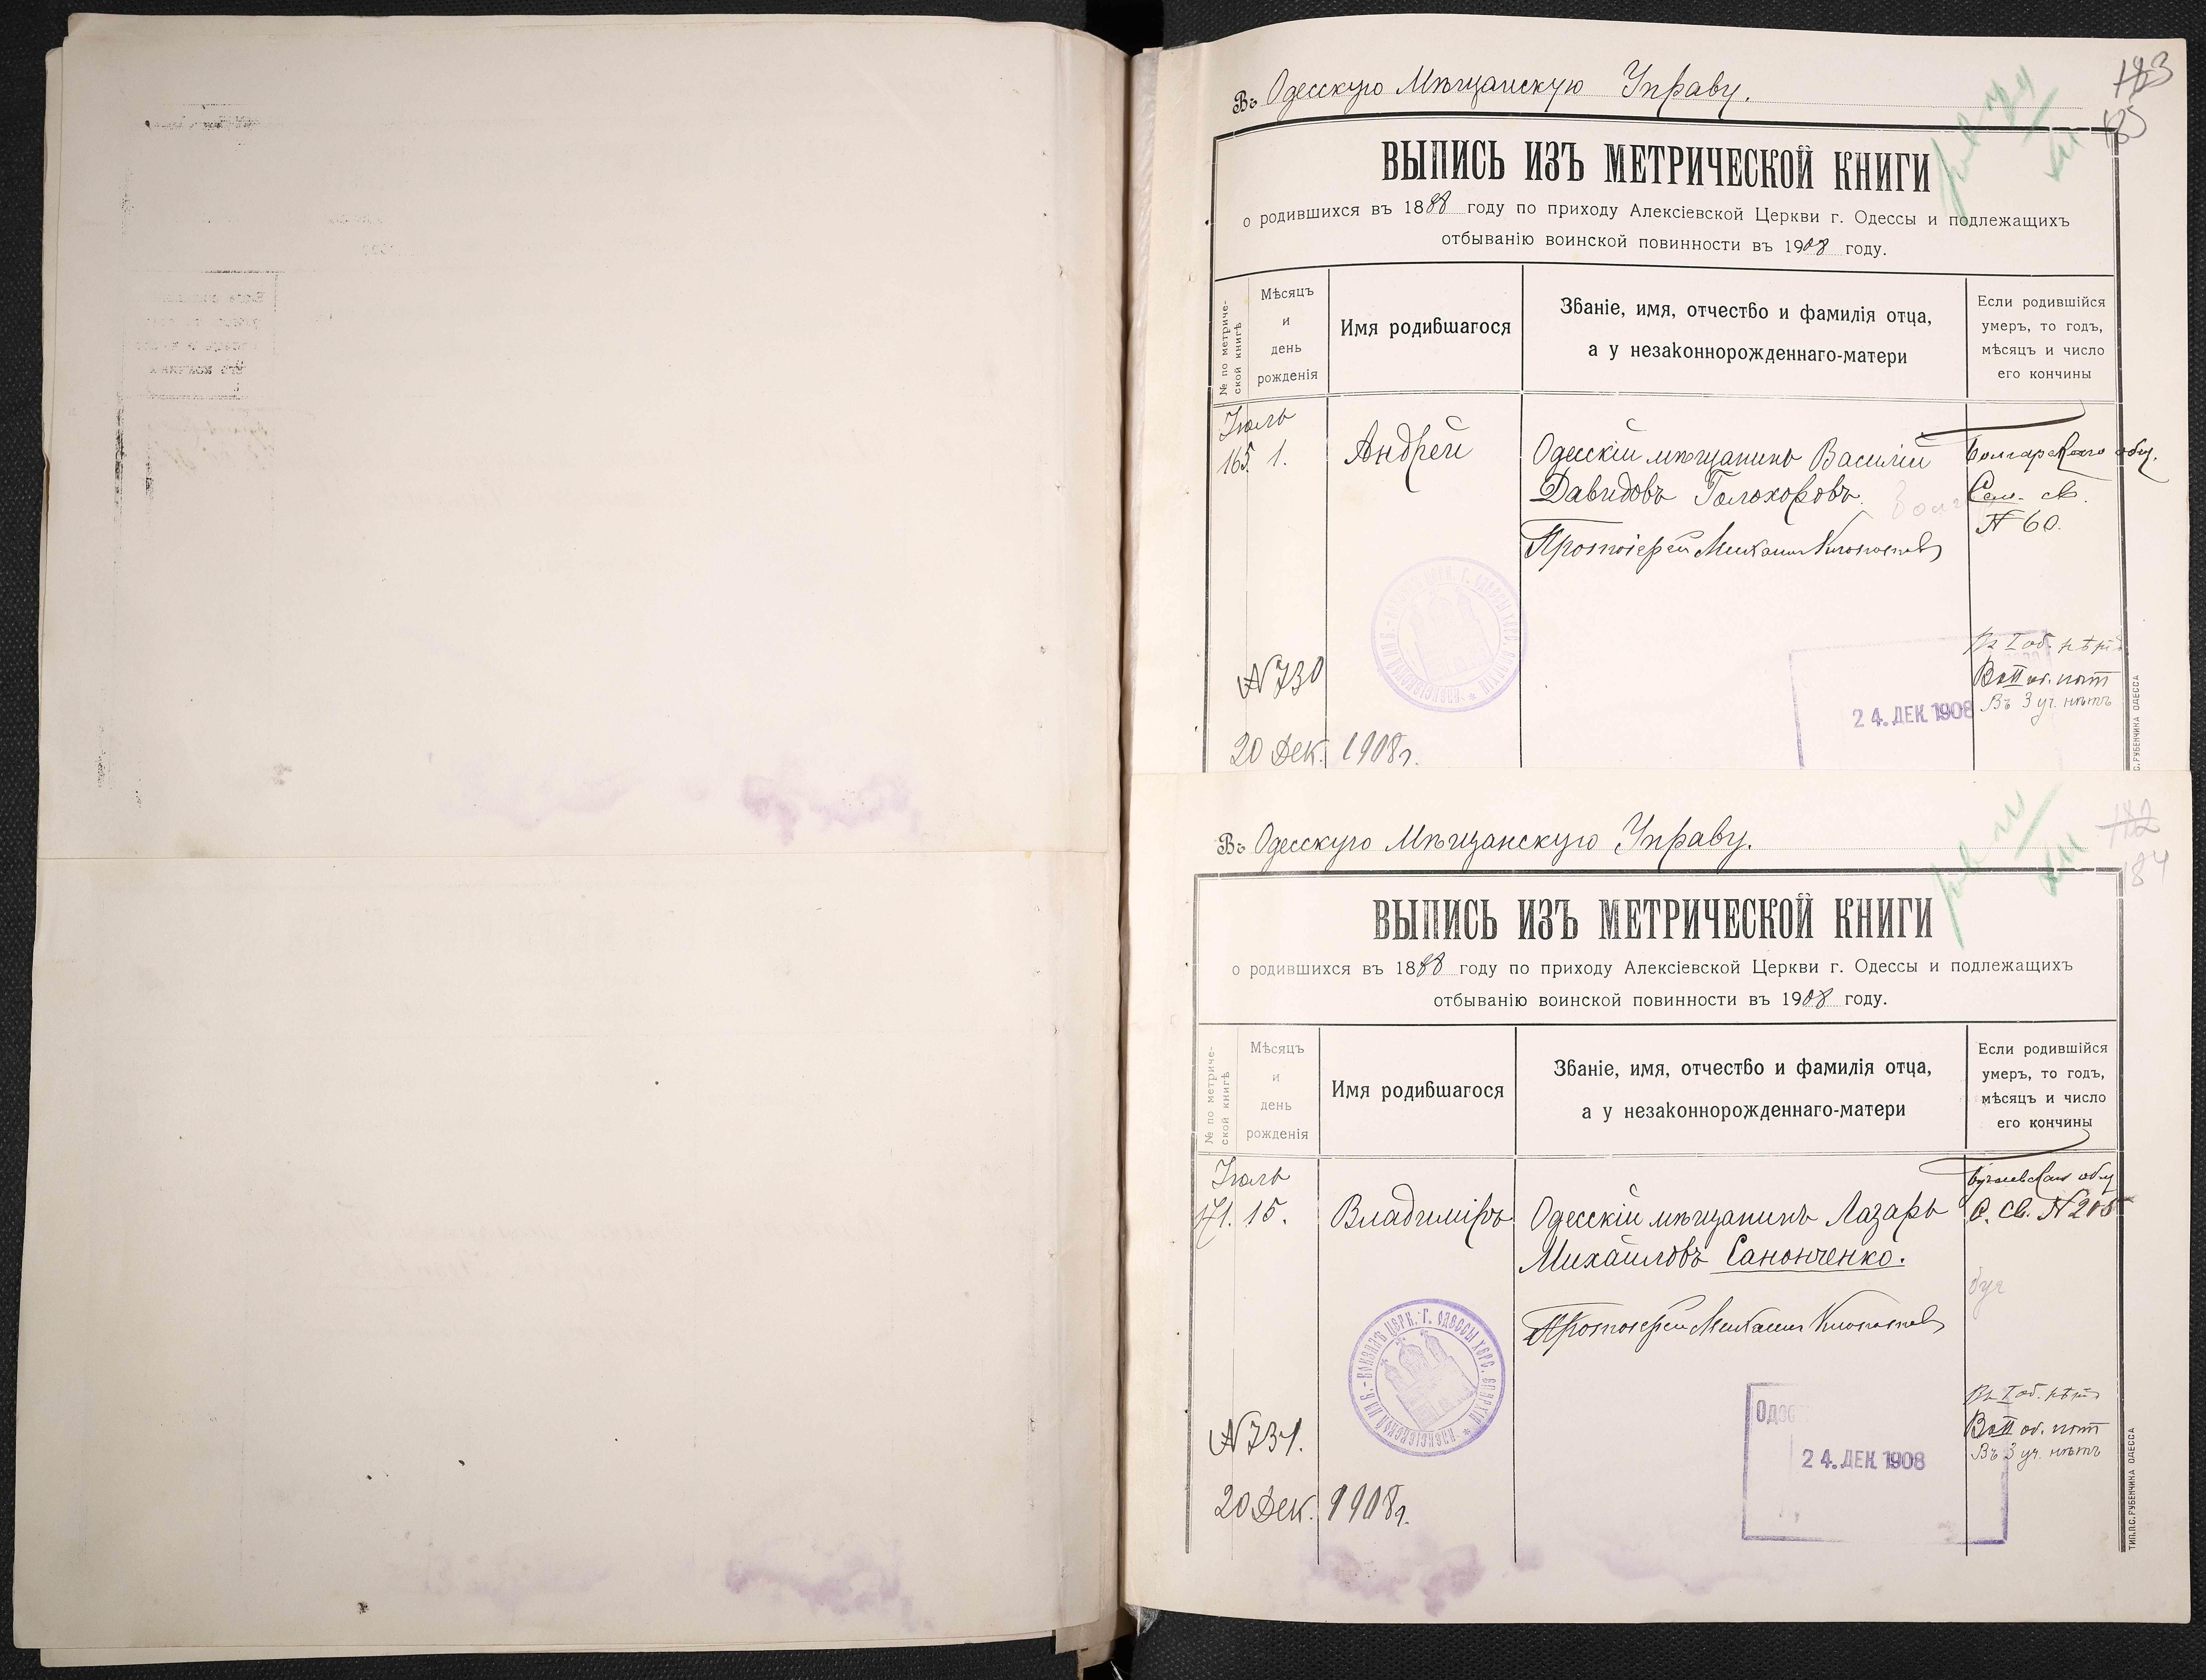 Въ Одесскую Мѣщанскую Управу.
183
185
ВЫПИСЬ ИЗЪ МЕТРИЧЕСКОЙ КНИГИ
о родившихся въ 1888 году по приходу Алексіевской Церкви г. Одессы и подлежащихъ
отбыванію воинской повинности въ 1908 году.
№ по метриче-
ской книгѣ
Мѣсяцъ
и
день
рожденія
Имя родившагося
Званіе, имя, отчество и фамилія отца,
а у незаконнорожденнаго-матери
Если родившійся
умеръ, то годъ,
мѣсяцъ и число
его кончины
Іюль
165. 1.
Андрей
Одесскій мѣщанинъ Василій
Давидовъ Голохоровъ.
Протоіерей Михаилъ
Болгарского общ.
Сем. сп.
№ 60.
№ 730
Въ I об. нѣтъ
Во II об. нѣтъ
Въ 3 уч. нѣтъ
24. ДЕК. 1908
20 Дек. 1908 г.
С. РУБЕНЧИКА ОДЕССА
Въ Одесскую Мѣщанскую Управу.
182
184
ВЫПИСЬ ИЗЪ МЕТРИЧЕСКОЙ КНИГИ
о родившихся въ 1888 году по приходу Алексіевской Церкви г. Одессы и подлежащихъ
отбыванію воинской повинности въ 1908 году.
№ по метриче-
ской книгѣ
Мѣсяцъ
и
день
рожденія
Имя родившагося
Званіе, имя, отчество и фамилія отца,
а у незаконнорожденнаго-матери
Если родившійся
умеръ, то годъ,
мѣсяцъ и число
его кончины
Іюль
171. 15.
Владиміръ
Одесскій мѣщанинъ Лазарь
Михайловъ Санонченко.
Протоіерей Михаилъ
С. св. № 205
буг
АЛЕКСІЕВСКОЙ ЦЕРК. Г. ОДЕССЫ ХЕРС. ЕПАРХІИ
№ 731.
Въ I об. нѣтъ
Во II об. нѣтъ
Въ 3 уч. нѣтъ
Одес
24. ДЕК. 1908
20 Дек. 1908 г.
ТИП. П. С. РУБЕНЧИКА ОДЕССА